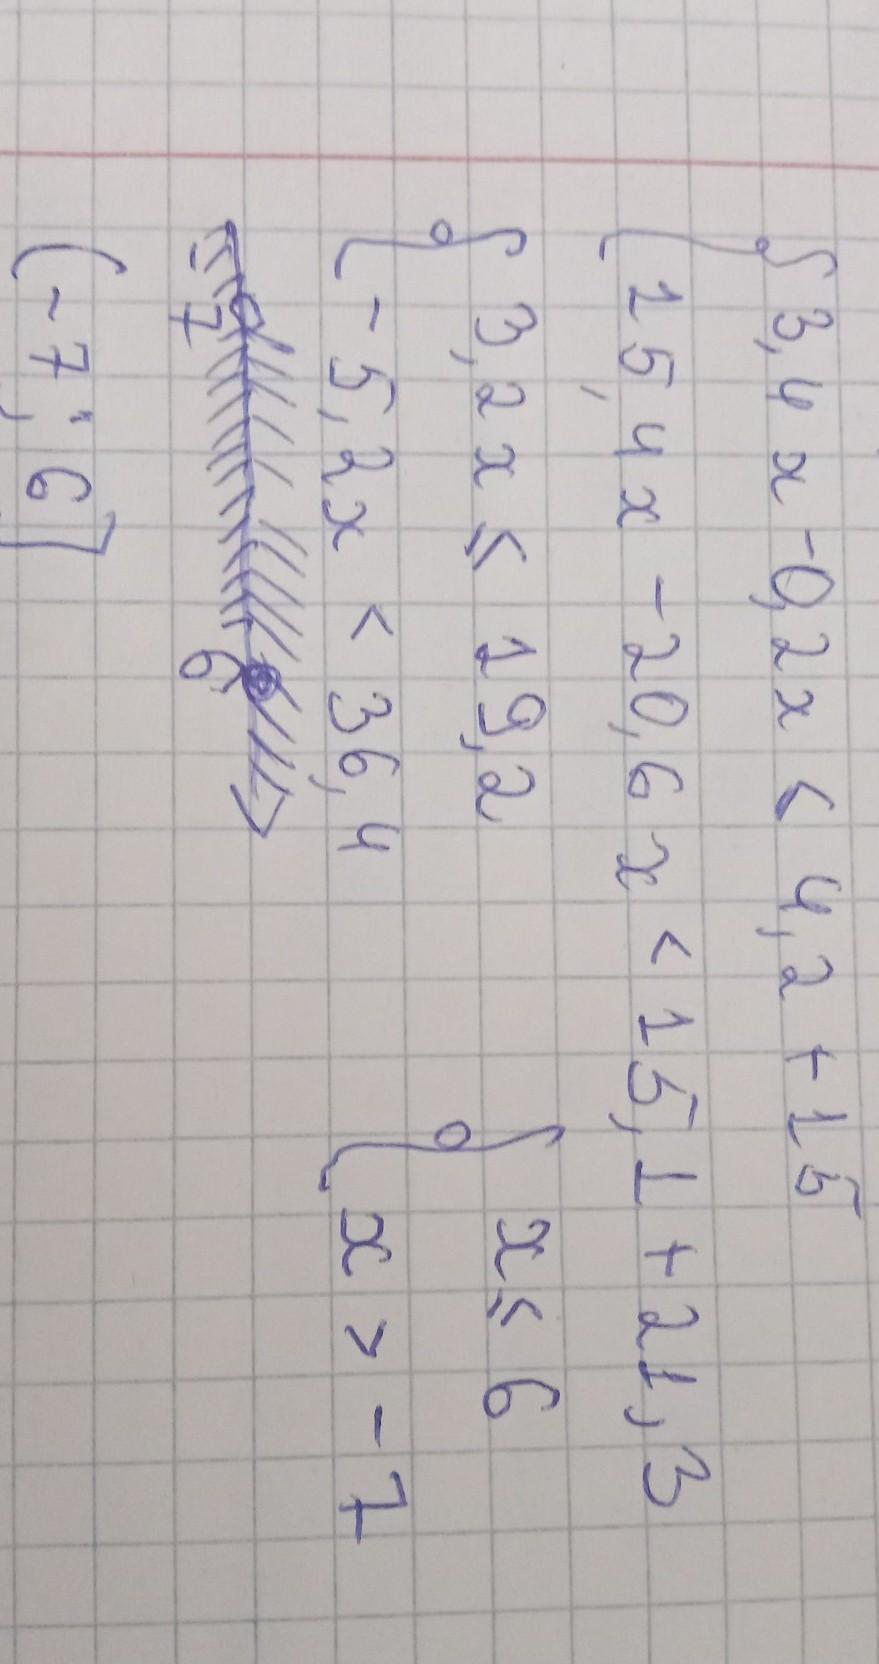 { 3,4x - 0,2x ≤ 4,2 + 15
{ 15,4x - 20,6x < 15,1 + 21,3
{ 3,2x ≤ 19,2 { x ≤ 6
{ -5,2x < 36,4 { x > -7
-7 6
(-7; 6]